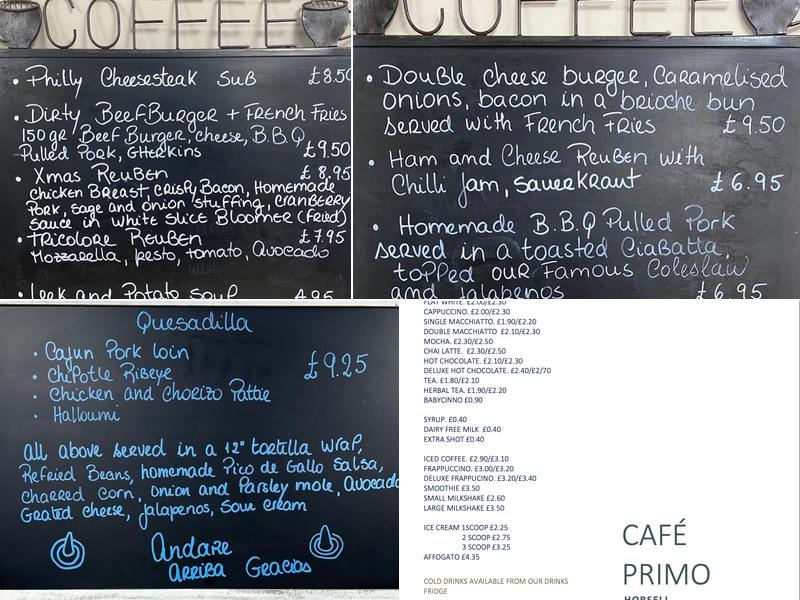 COFFEE
• Philly Cheesesteak Sub £8.50
• Dirty Beef Burger + French Fries
150gr Beef Burger, cheese, B.B.Q
Pulled Pork, GHerkins £9.50
• Xmas Reuben £8.95
chicken Breast, crispy Bacon, Homemade
Pork, sage and onion stuffing, cranberry
sauce in white slice Bloomer (fried)
• Tricolore Reuben £7.95
Mozzarella, pesto, tomato, Avocado
• Leek and Potato Soup 4.95
COFFEE
• Double cheese burger, Caramelised
onions, bacon in a brioche bun
served with French Fries £9.50
• Ham and Cheese Reuben with
Chilli Jam, Sauerkraut £6.95
• Homemade B.B.Q Pulled Pork
served in a toasted Ciabatta,
topped our Famous Coleslaw
and jalapenos £6.95
Quesadilla
• Cajun Pork loin
• Chipotle Ribeye £9.25
• Chicken and Chorizo Pattie
• Halloumi
All above served in a 12" tortilla wrap,
Refried Beans, homemade Pico de Gallo Salsa,
charred corn, onion and Parsley mole, Avocado
Grated cheese, Jalapenos, Sour cream
Andare
Arriba Gracias
FLAT WHITE. £2.00/£2.30
CAPPUCCINO. £2.00/£2.30
SINGLE MACCHIATTO. £1.90/£2.20
DOUBLE MACCHIATTO £2.10/£2.30
MOCHA. £2.30/£2.50
CHAI LATTE. £2.30/£2.50
HOT CHOCOLATE. £2.10/£2.30
DELUXE HOT CHOCOLATE. £2.40/£2/70
TEA. £1.80/£2.10
HERBAL TEA. £1.90/£2.20
BABYCINNO £0.90
SYRUP. £0.40
DAIRY FREE MILK £0.40
EXTRA SHOT £0.40
ICED COFFEE. £2.90/£3.10
FRAPPUCCINO. £3.00/£3.20
DELUXE FRAPPUCINO. £3.20/£3.40
SMOOTHIE £3.50
SMALL MILKSHAKE £2.60
LARGE MILKSHAKE £3.50
ICE CREAM 1SCOOP £2.25
2 SCOOP £2.75
3 SCOOP £3.25
AFFOGATO £4.35
COLD DRINKS AVAILABLE FROM OUR DRINKS
FRIDGE
CAFÉ
PRIMO
HORSELL